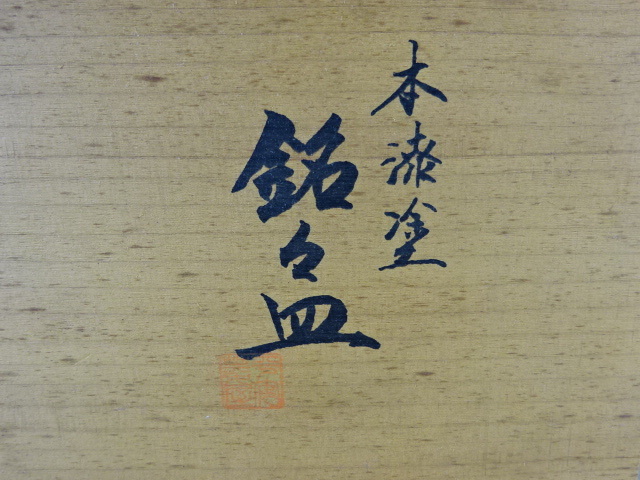 本漆塗
銘々皿